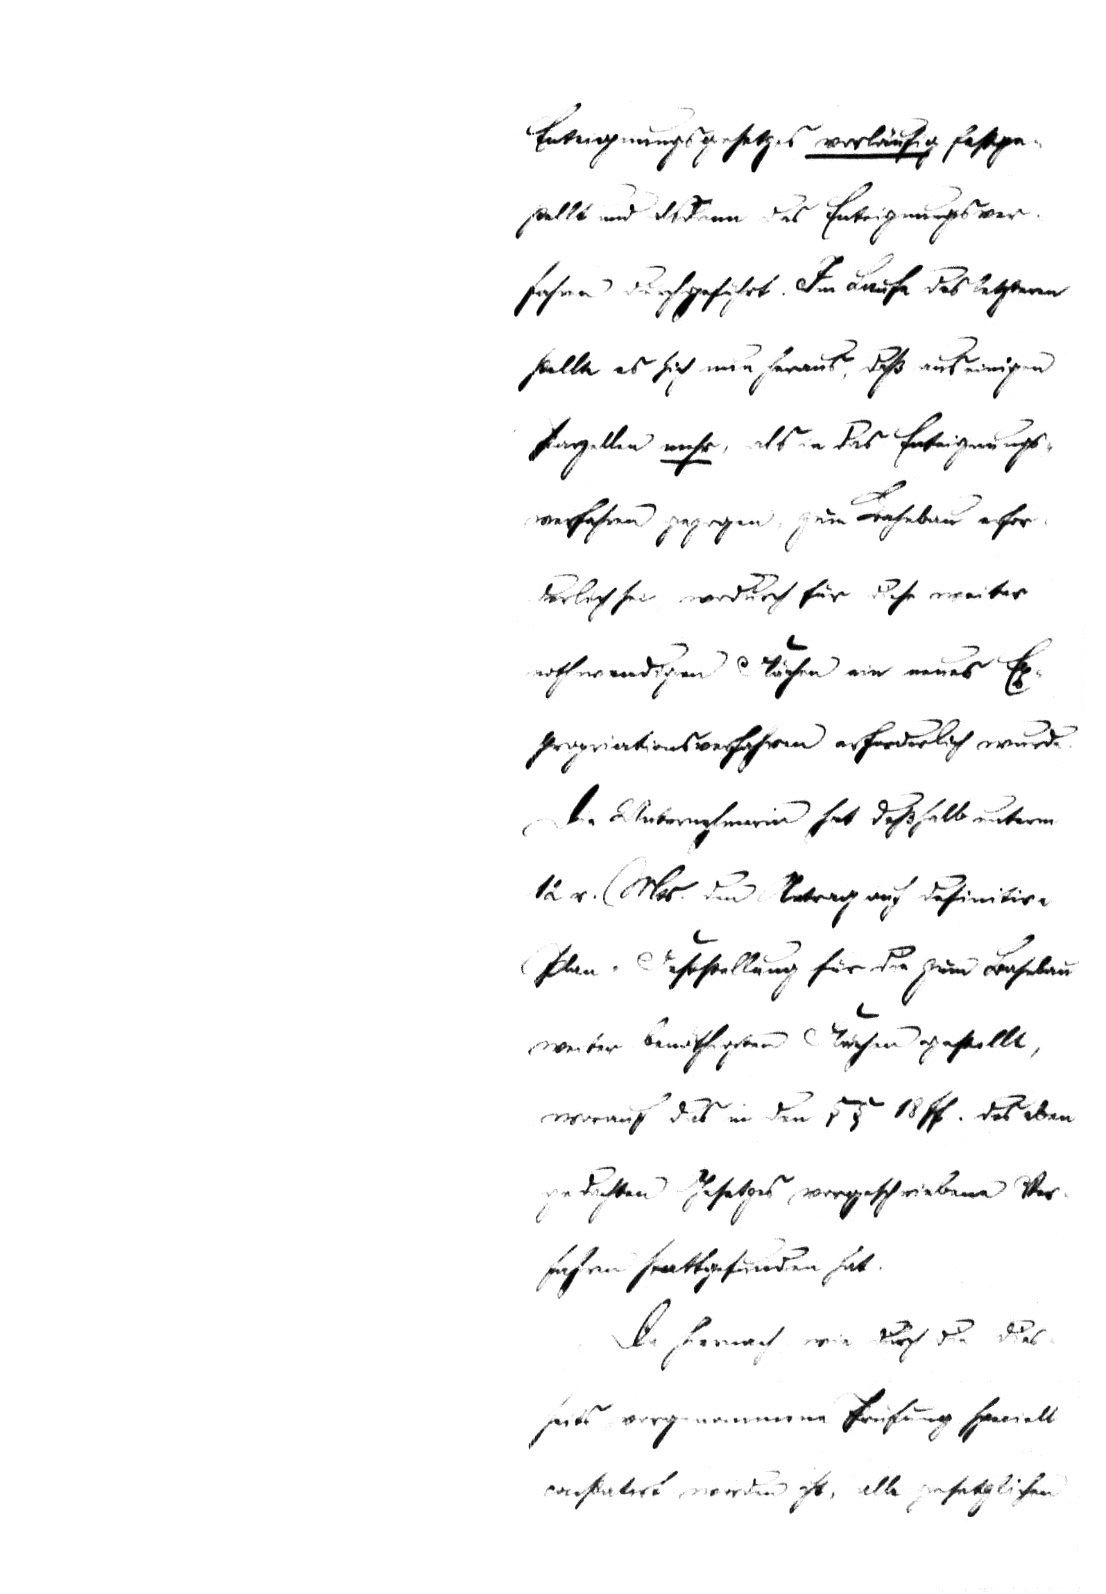 Enteignungsgesetzes vorläufig festge-
stellt und alsdann das Enteignungsver-
fahren durchgeführt. Im Laufe des letzteren
stellte es sich nun heraus, daß aus einigen
Parzellen mehr, als in das Enteignungs-
verfahren gezogen, zum Bahnbau erfor-
derlich sei wodurch für diese weiter
nothwendigen Flächen ein neues Ex-
propriationsverfahren erforderlich wurde.
Die Unternehmerin hat deßhalb unterm
12 v. Mts. den Antrag auf definitive
Plan-Feststellung für die zum Bahnbau
weiter benöthigten Flächen gestellt,
worauf das in den §§ 18 ff. des eben
gedachten Gesetzes vorgeschriebene Ver-
fahren stattgefunden hat.
Da hiernach wie durch die dies-
seits vorgenommene Prüfung speciell
constatirt worden ist, alle gesetzlichen